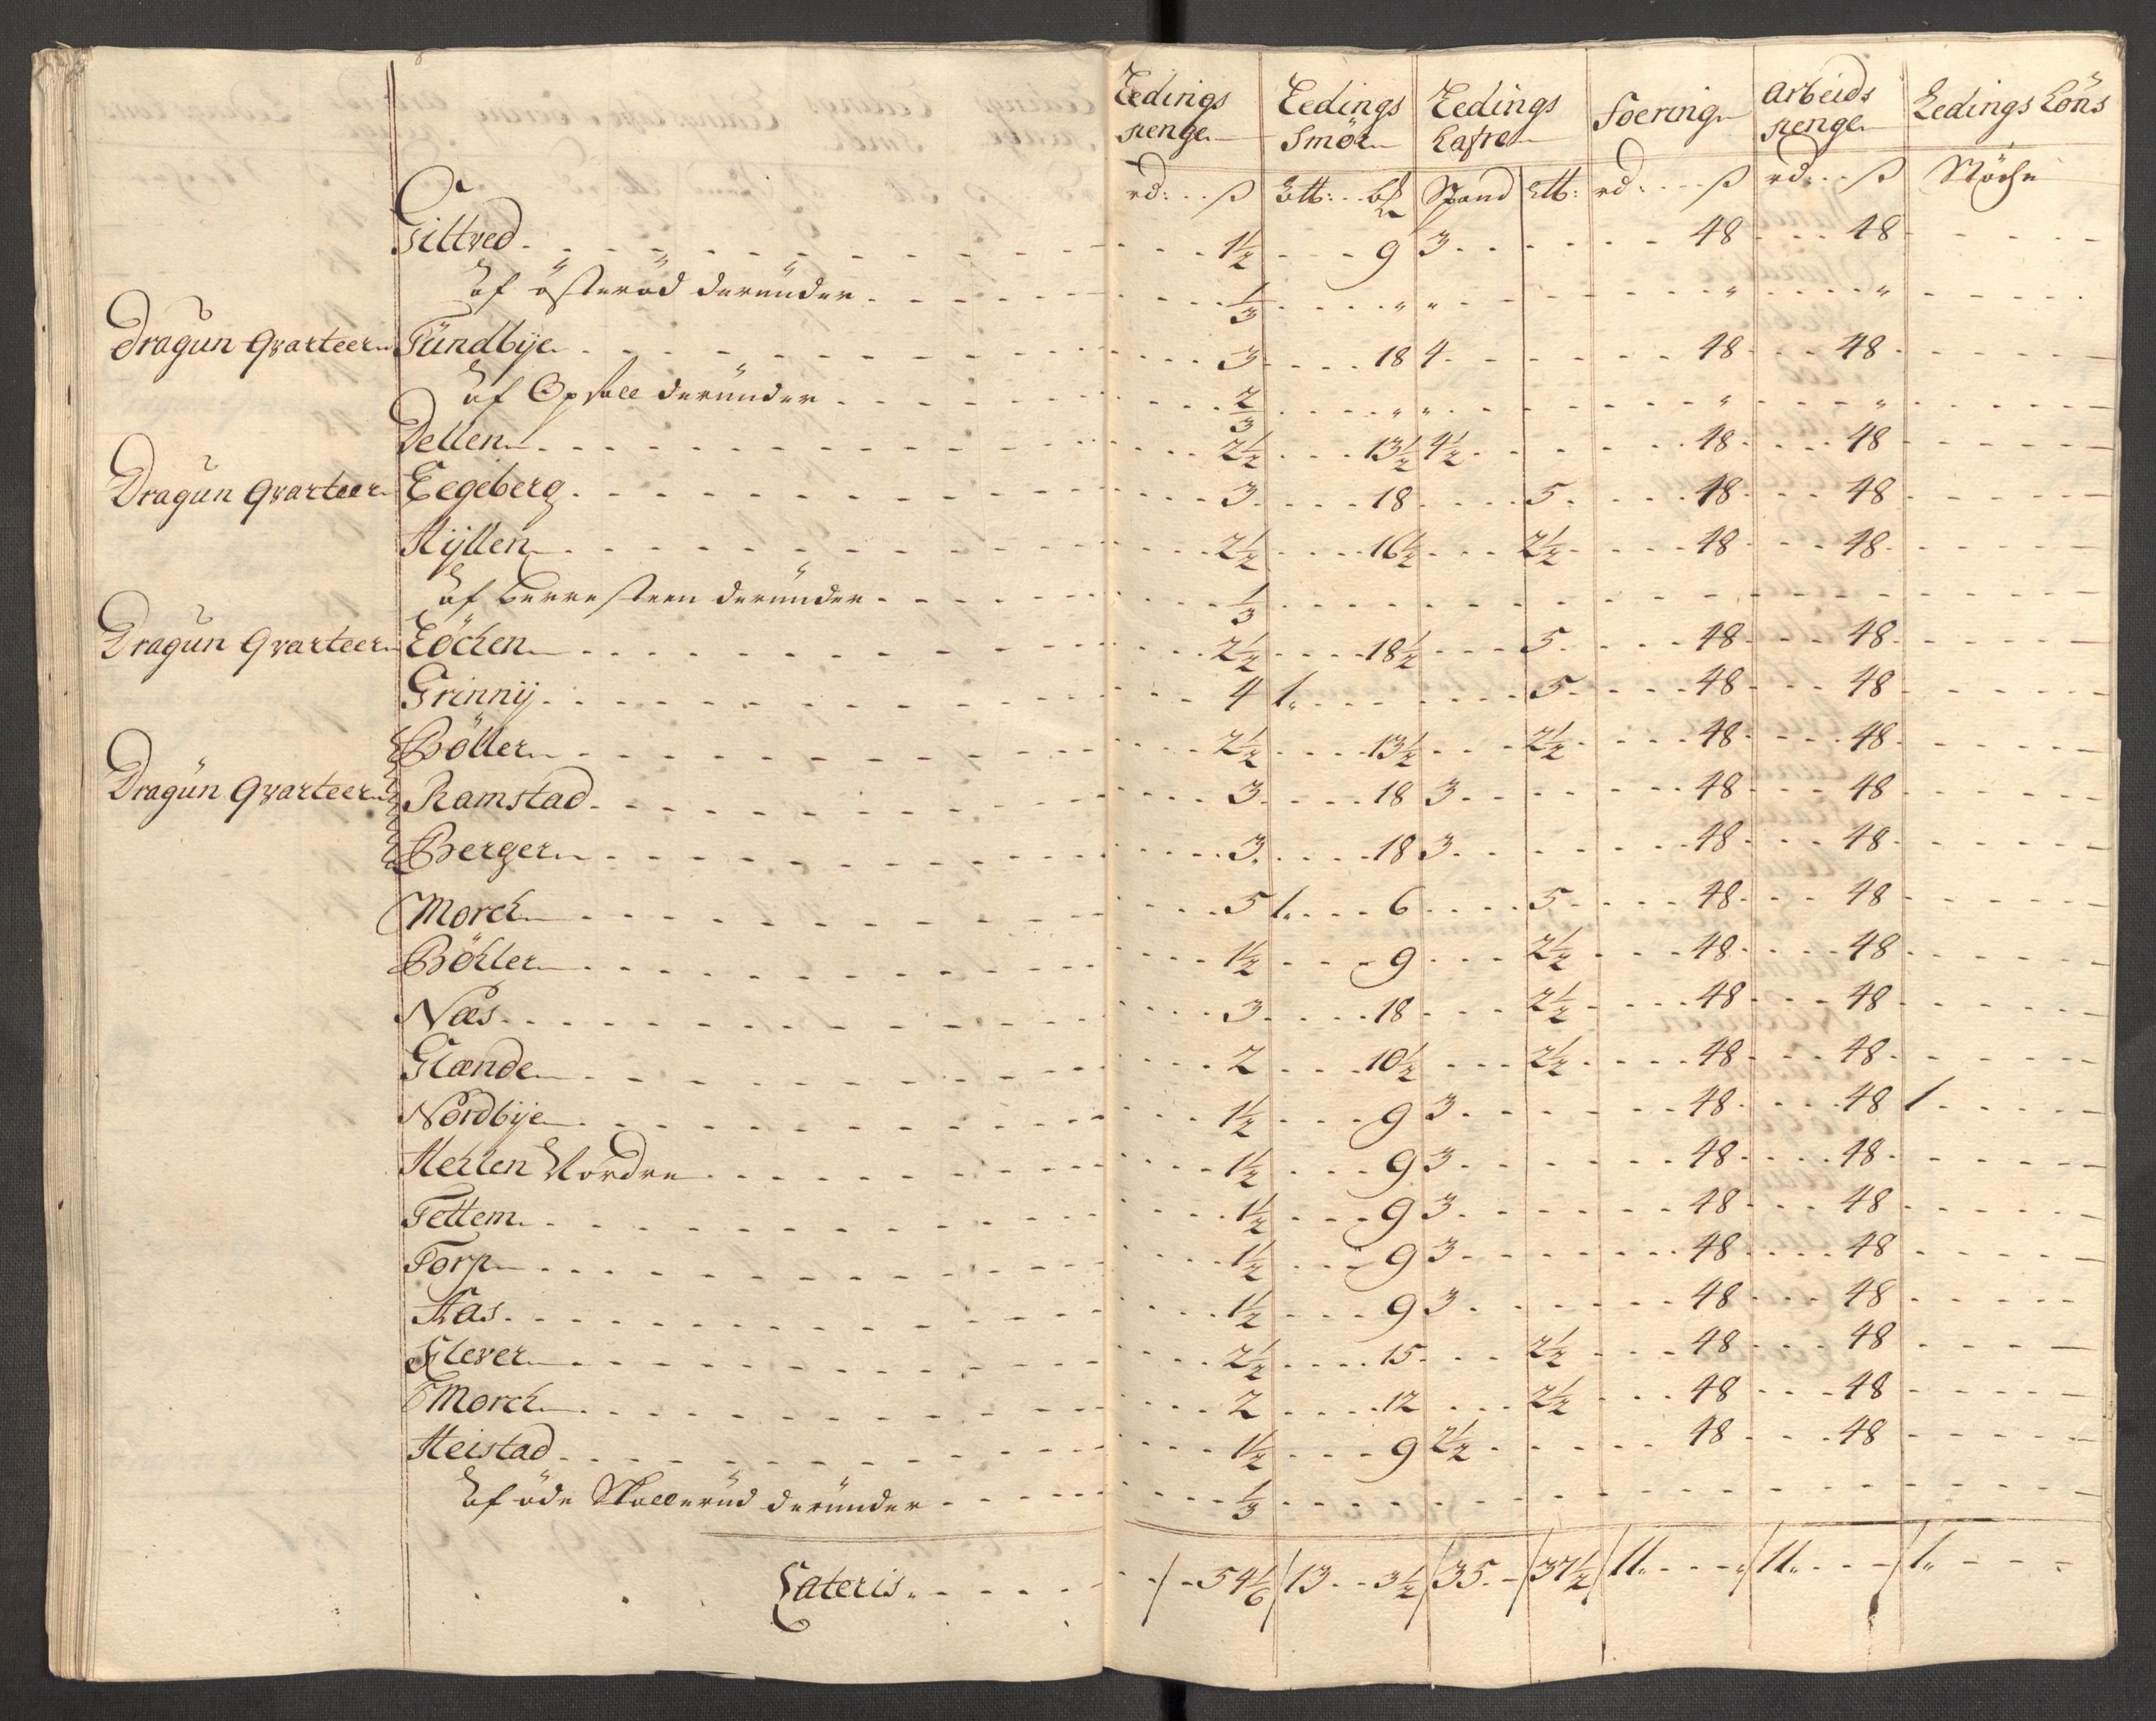 Ledings penge Ledings Smör Ledings Hafre Foering Arbeids penge Ledings Höns
rd: ß Btt: b℔ Spand Stt: rd: ß rd: ß
Gittved 1½ 9 3 48 48
af österöd derunder ⅓ " " " "
Dragun Qvarteer Tundbÿe 3 18 4 48 48
af Opsall derunder ⅔ " " " "
Dellen 2½ 13½ 4½ 48 48
Dragun Qvarteer Eegeberg 3 18 5 48 48
Hÿllen 2½ 16½ 2½ 48 48
af derunder ⅓
Dragun Qvarteer Löcken 2½ 18½ 5 48 48
Grinnij 4 1" 5 48 48
Böller 2½ 13½ 2½ 48 48
Dragun Qvarteer Ramstad 3 18 3 48 48
Berger 3 18 3 48 48
Morck 5 1" 6 5 48 48
Böhler 1½ 9 2½ 48 48
Næs 3 18 2½ 48 48
Glænde 2 10½ 2½ 48 48
Nordbÿe 1½ 9 3 48 48 1
Hellen Nordre 1½ 9 3 48 48
Tettem 1½ 9 3 48 48
Torp 1½ 9 3 48 48
Aas 1½ 9 3 48 48
Klever 2½ 15 2½ 48 48
Morck 2 12 2½ 48 48
Heistad 1½ 9 2½ 48 48
af öde Skollerud derunder ⅓
Lateris 54⅙ 13 3½ 35 37½ 11 " 11 1"